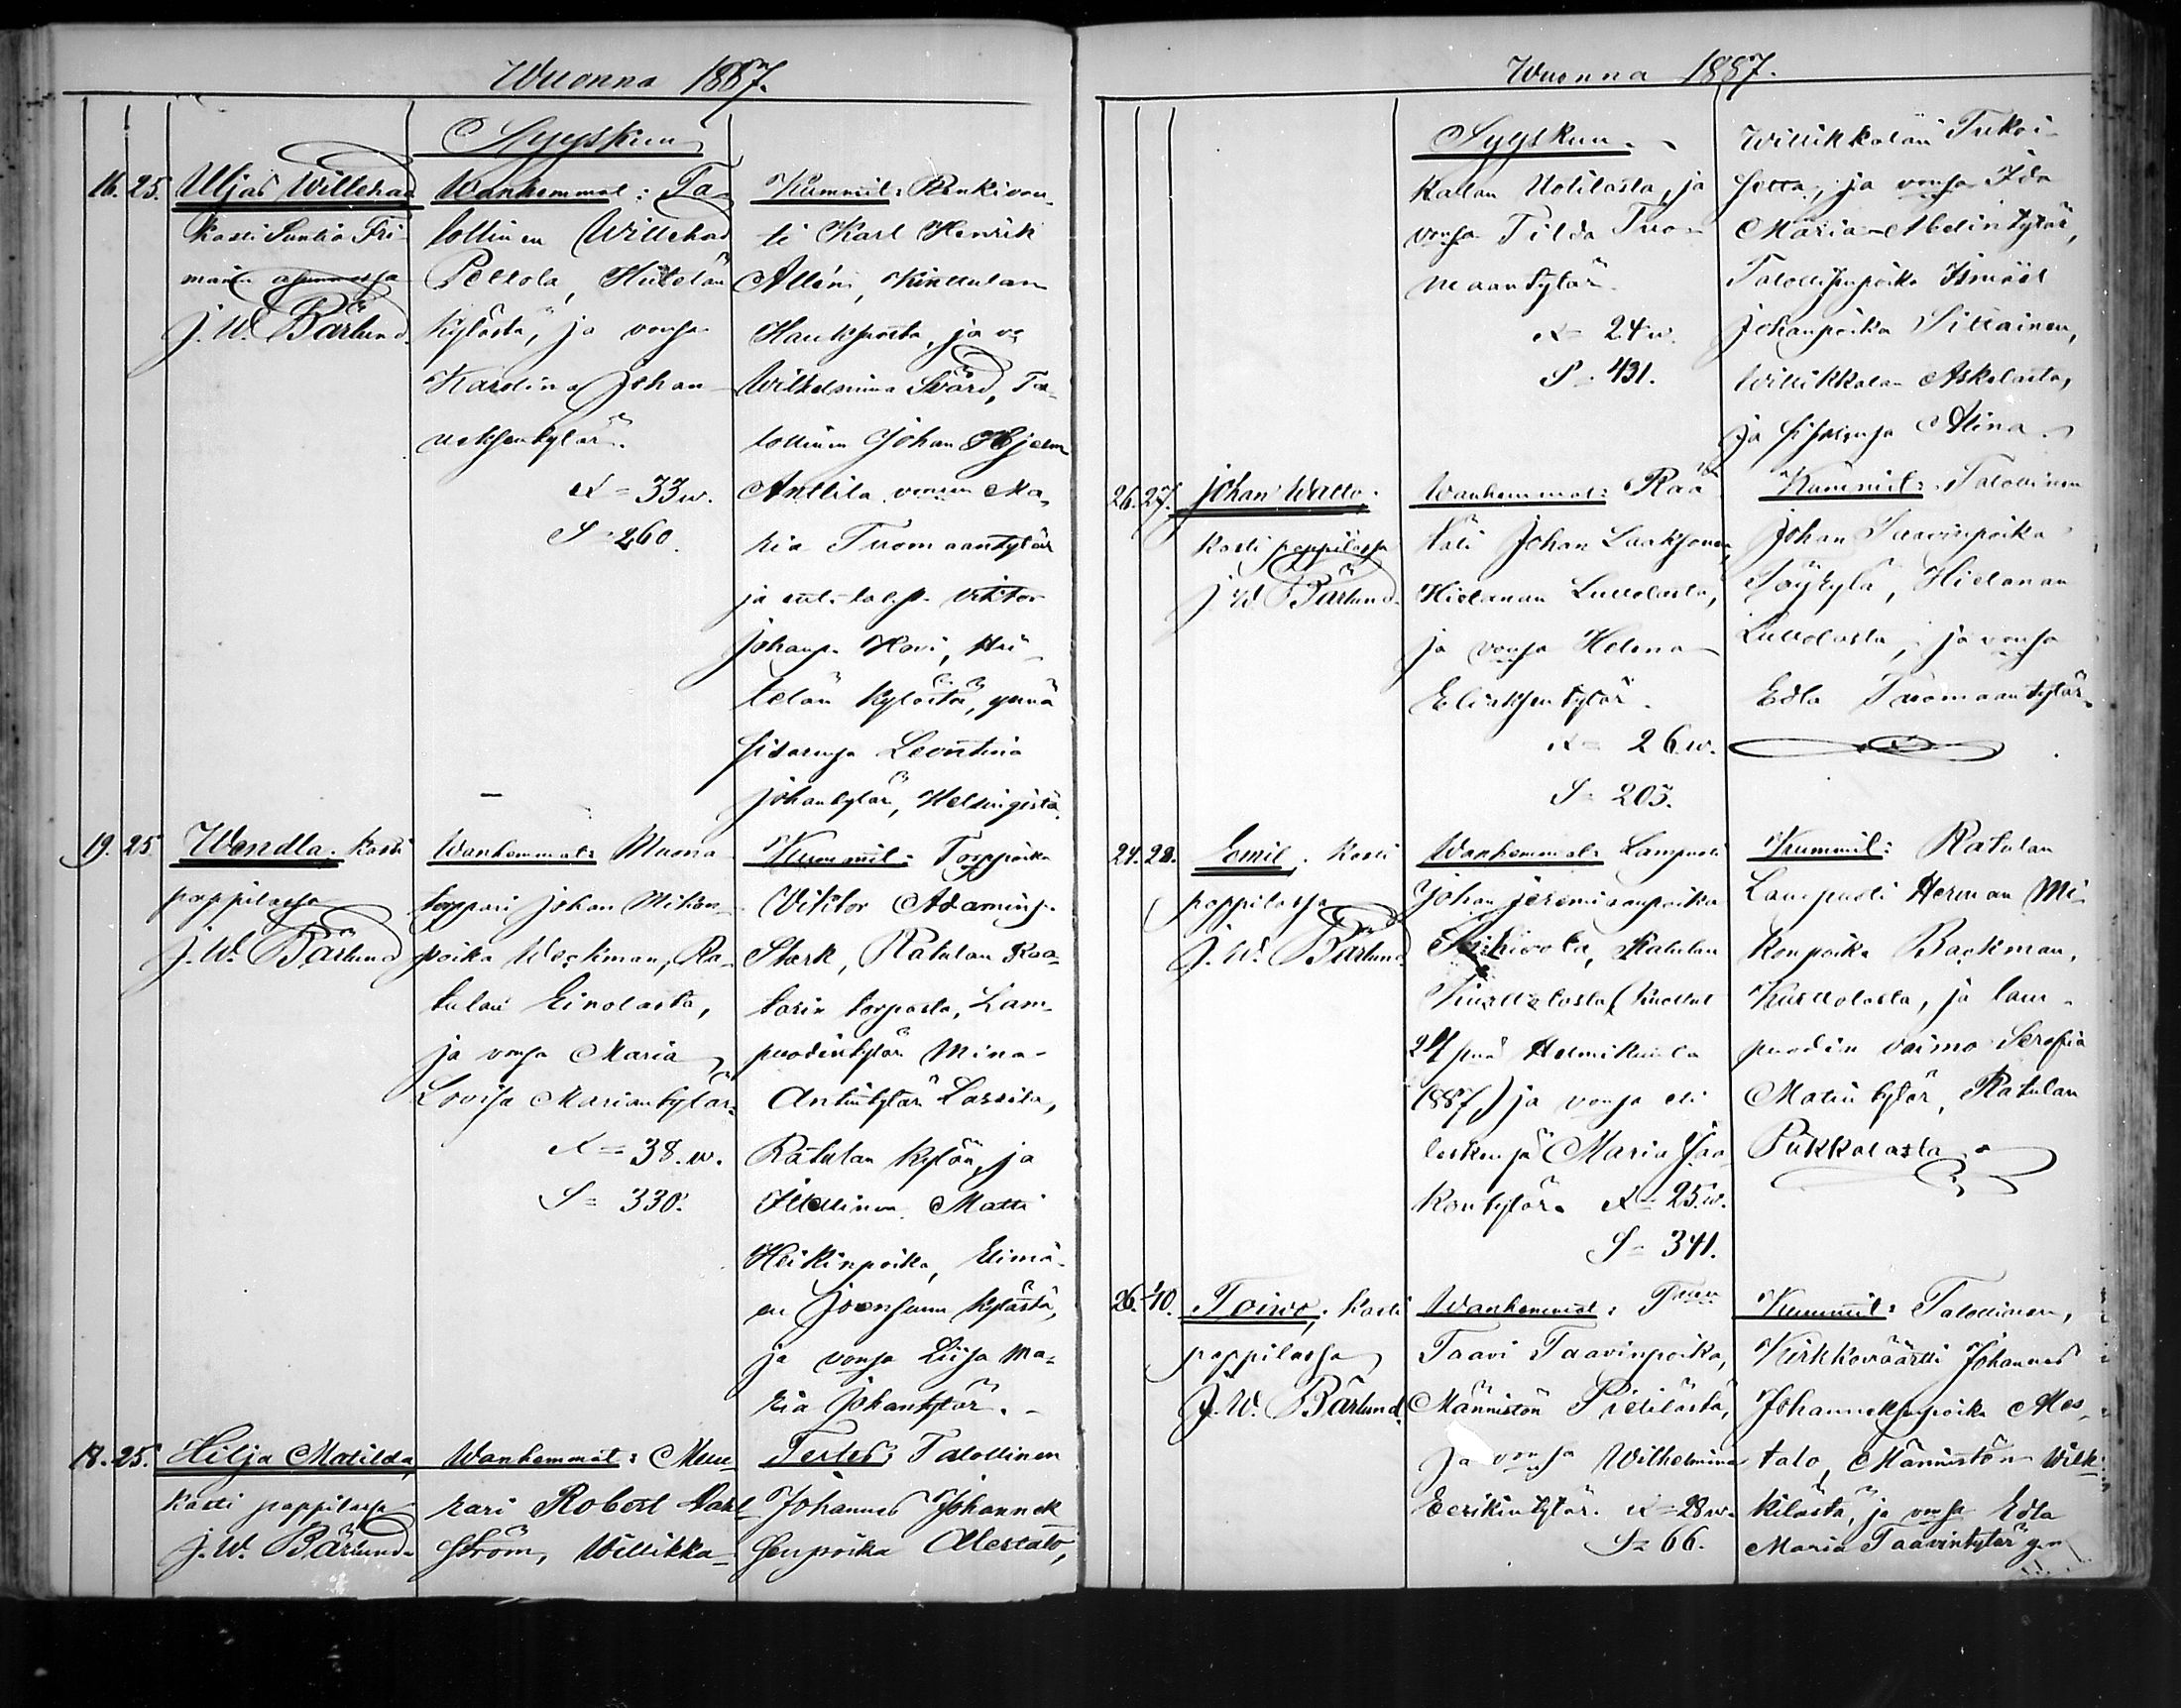 Wuonna 1887.
Syyskuu
16. 25. Uljas Willehad
Kasti Suntio Fri-
manin asunnossa
J. W. Bärlund.
Wanhemmat: Ta-
lollinen Willehad
Peltola, Hiitelän
kylästä, ja vonsa
Karolina Johan-
neksentytär.
K = 33 w.
S = 260.
Kummit:
ti Karl Henrik
Allén,
ja va
Wilhelmina Svärd, Ta-
lollinen Johan Hjelm
Anttila vonsa Ma-
ria Tuomaantytär
ja Viktor
Johanp. Hovi, Hii-
telän kylästä, ynnä
sisarensa Leontina
Johantytär, Helsingistä.
19. 25 Wendla. Kasti
pappilassa
J. W. Bärlund
Wanhemmat: Muona
torppari Johan Mikon-
poika Weckman, Ra-
tulan Einolasta,
ja vonsa Maria
Lovisa Mariantytär.
K = 38. w.
S = 330.
Kummit: Torppoika
Viktor Adaminp.
Stark, Ratulan Kaa-
tarin torpasta, Lam-
puodintytär Mina
Antintytär Lassila,
Ratulan kylän, ja
Itellinen Matti
Heikinpoika, Elimä-
en Joensuun kylästä,
ja vonsa Liisa Ma-
ria Johantytär.
18. 25. Hilja Matilda,
Kasti pappilassa
J. W. Bärlund
Wanhemmat: Muu-
rari Robert Dahl-
ström, Willikka-
Testes: Talollinen
Johannes Johannek-
senpoika Mestalo,
Wuonna 1887.
Syyskuu.
kalan Uotilasta, ja
vonsa Tilda Tuo-
maantytär.
K = 24 w.
S = 431.
Willikkalan
ja vonsa Ida
Maria Abelintytär,
Talollisenpoika Ismael
Johanpoika Sillainen,
Willikkalan Askelasta,
ja sisarensa Alina.
26. 27. Johan Waltto.
Kasti pappilassa
J. W. Bärlund.
Wanhemmat: Rää-
täli Johan Laaksonen,
Hietanan Lullolasta,
ja vonsa Helena
Eliaksentytär.
K = 26. w.
S = 203.
Kummit: Talollinen
Johan Taavinpoika
Töykylä, Hietanan
Lullolasta, ja vonsa
Edla Tuomaantytär.
24. 28. Emil. Kasti
pappilassa
J. W. Bärlund.
Wanhemmat: Lampuoti
Johan Jeremiaanpoika
Ratulan
(kuollut
24 pnä Helmikuuta
1887) ja vonsa eli
leskensä Maria Jaa-
kontytär. K = 25. w.
S = 341.
Kummit: Ratulan
Lampuoti Herman Mi-
konpoika Backman,
Kuttolasta, ja lam-
puodin vaimo Serafia
Matintytär, Ratulan
Pukkalasta.
26. 40. Toiwo; Kasti
pappilassa
J. W. Bärlund.
Wanhemmat:
Taavi Taavinpoika,
Männistön Pietilästä,
Ja vonsa Wilhelmina
Eerikintytär. K = 28 w.
S = 66.
Kummit: Talollinen,
Kirkkoväärtti Johannes
Johanneksenpoika Mes-
talo, Männistön Wilk-
kilästä, ja vonsa Edla
Maria Taavintytär